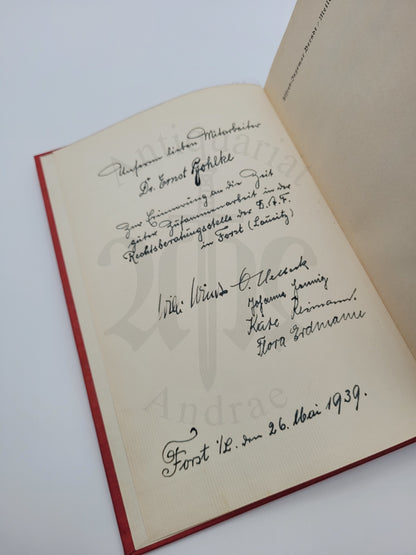 Unserm lieben Mitarbeiter
Dr. Ernst
Zur Erinnerung an die Zeit
guter Zusammenarbeit in der
Rechtsberatungsstelle der D.A.F.
in Forst (Lausitz)
Willi
Johanna
Käte Reimann.
Flora Erdmann
Forst i/L. den 26. Mai 1939.
Antiquariat
Andrae